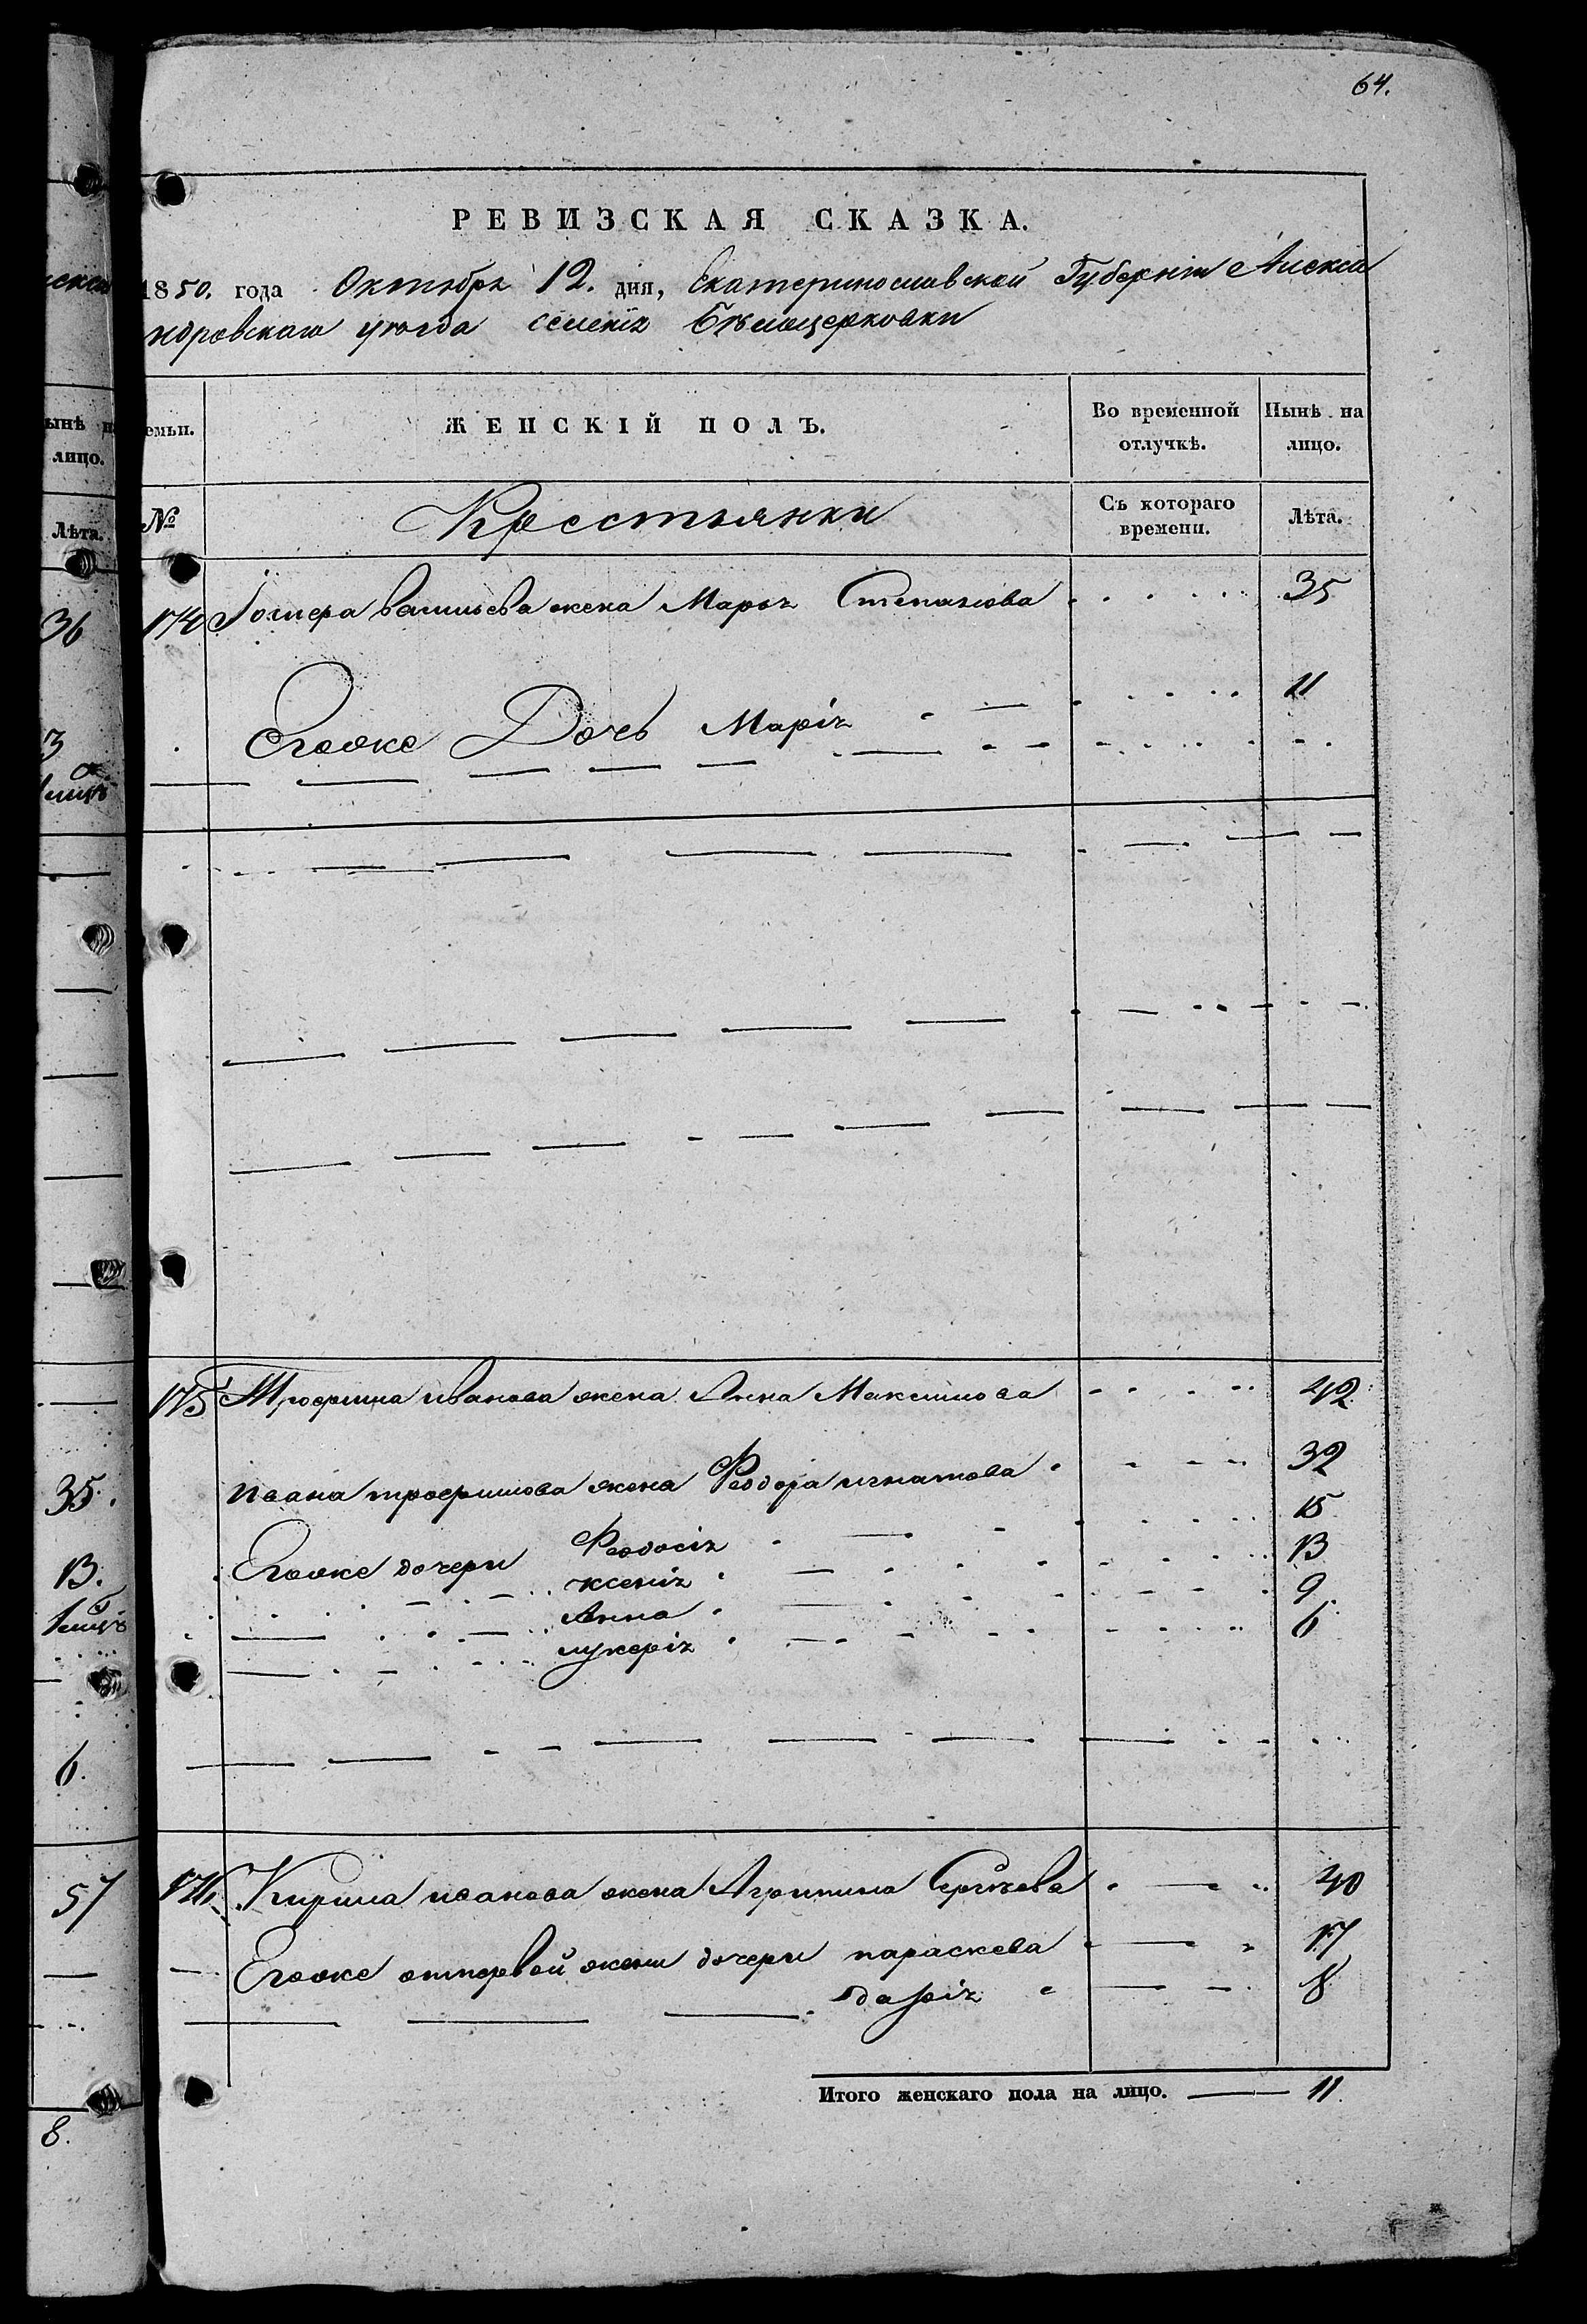 64.
РЕВИЗСКАЯ СКАЗКА.
1850. года Октября 12. дня, Екатеринославской Губерніи Алекса
ндровскаго уѣзда селенія Бѣлоцерковки
ынѣ н
лицо.
емьи.
ЖЕНСКІЙ ПОЛЪ.
Во временной отлучкѣ.
Нынѣ на лицо.
Лѣта.
№
Крестьянки
Съ котораго времени.
Лѣта.
36
174 васильева жена Марья Степанова 35
3
Егоже Дочь Марія 11
175 Трофима иванова жена Анна Максимова 42
35.
ивана трофимова жена Феодора игнатова 32
Егоже дочери Феодосія 15
13.
ксенія 13
Анна 9
лукерія 6
6.
57
176 Кирила иванова жена Агрипина Сергѣева 40
Егоже отпервой жены дочери параскева 17
дарія 8
Итого женскаго пола на лицо. 11.
8.